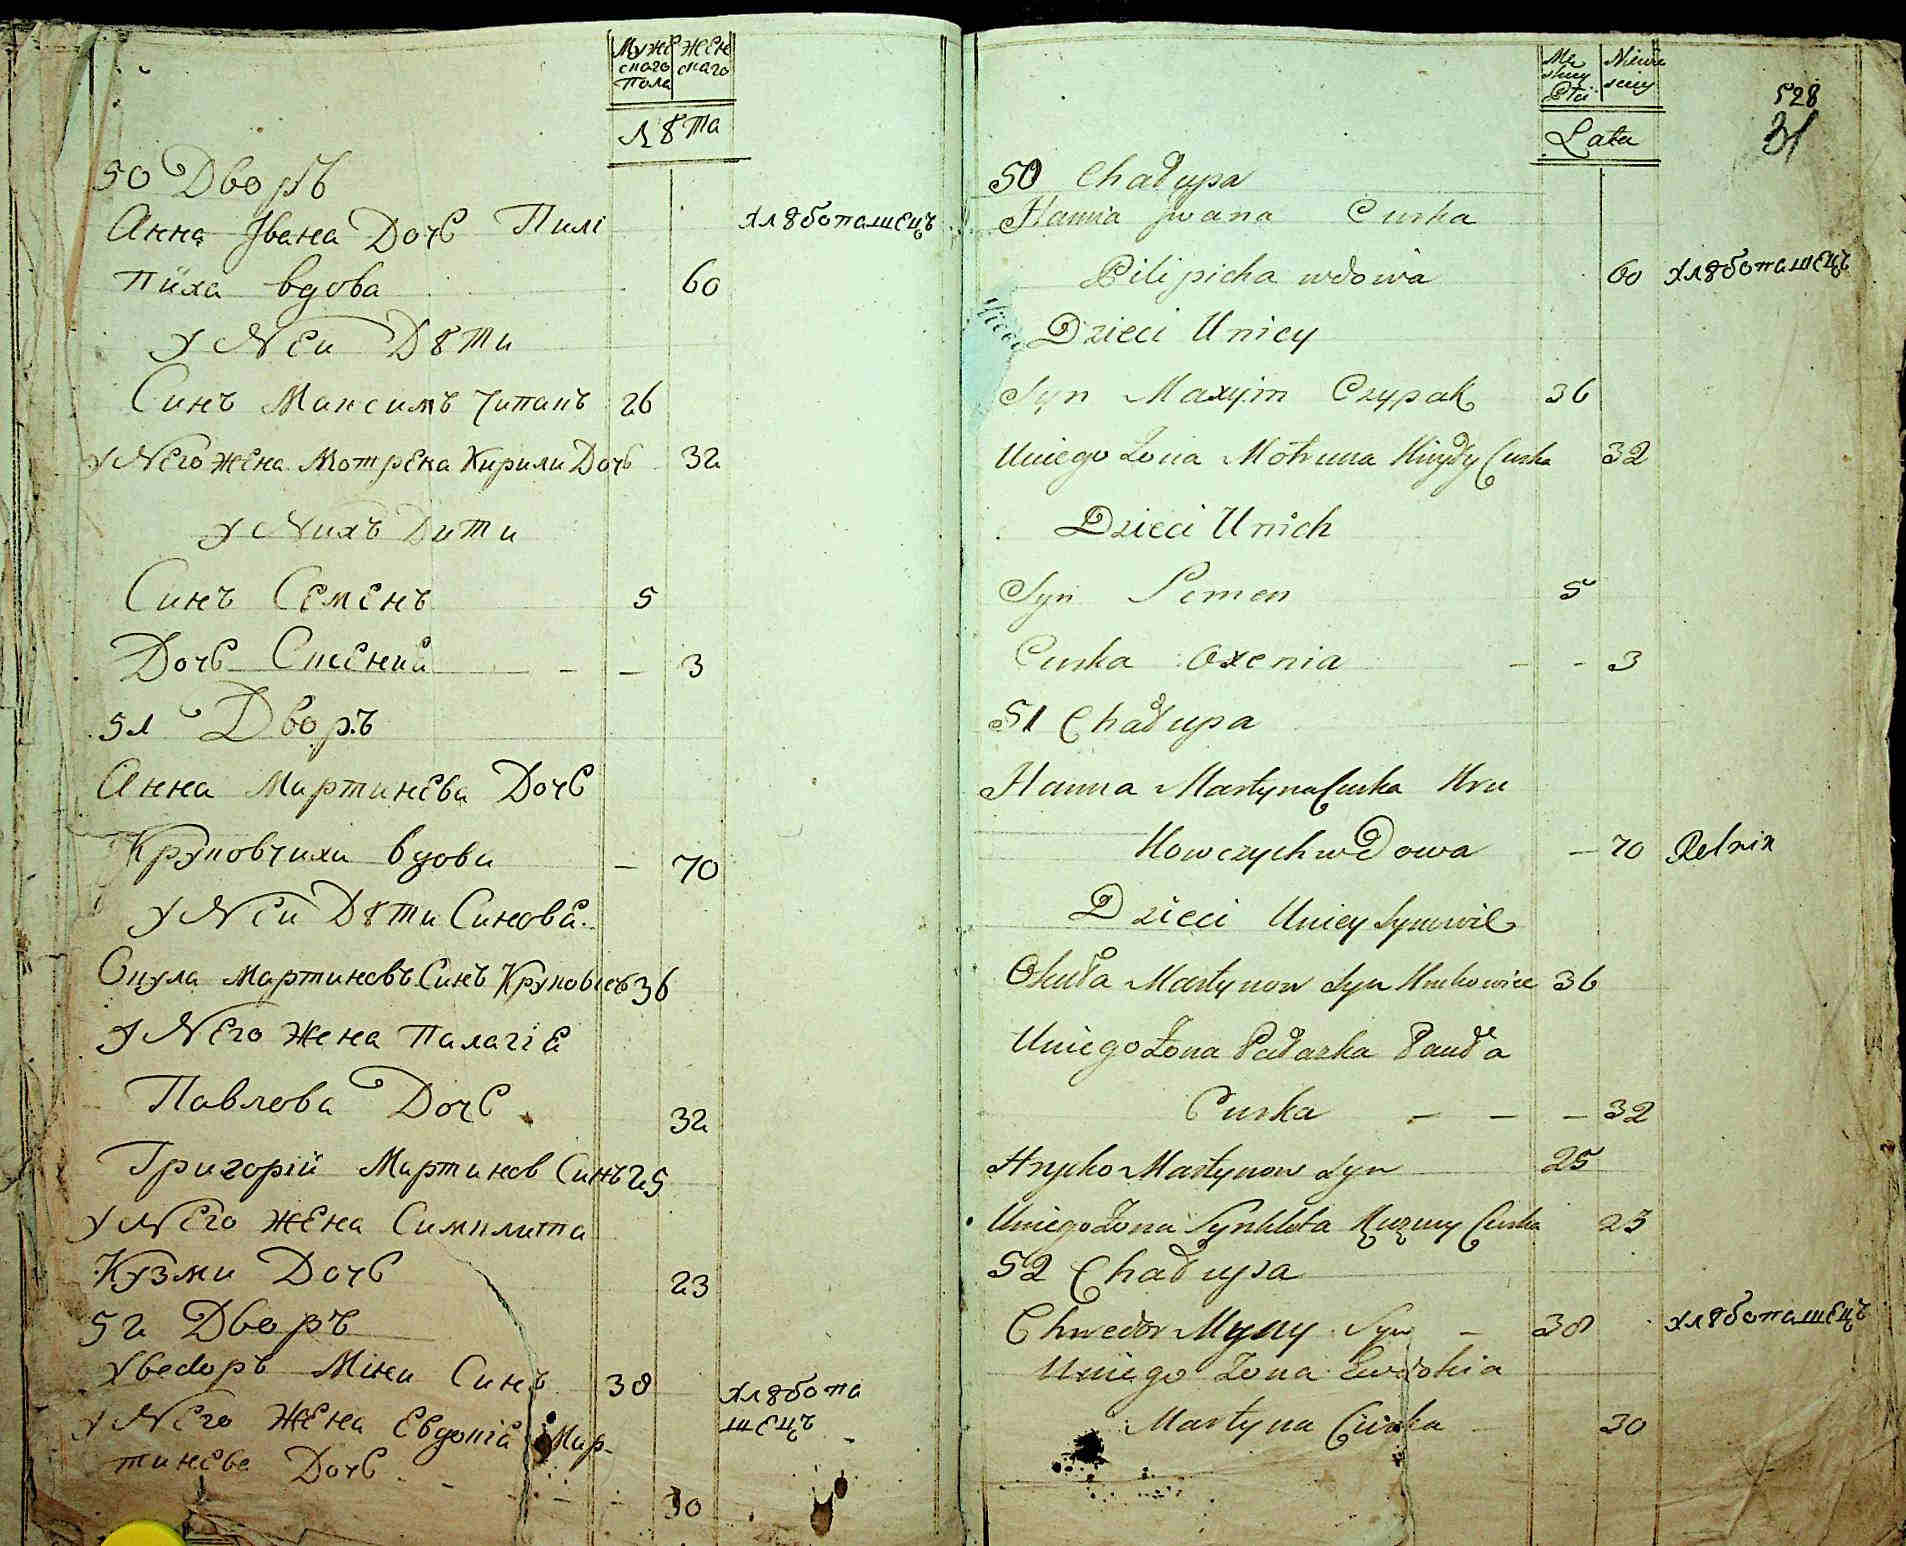 Муже
скаго
Пола
Жен
скаго
Лѣта
50 Дворъ
Анна Івана Дочь Пилі
хлѣбопашецъ
пиха вдова 60
у Неи Дѣти
Синъ Максимъ Чипакъ 26
у Него жена Мотрена Кирили Дочь 32
у Нихъ Дити
Синъ Семенъ 5
Дочь Ксения - - 3
51 Дворъ
Анна Мартинева Дочь
Круковчиха вдова - 70
у Неи Дѣти Синовя
Окула Мартиновъ Синъ Круковіечь 36
у Него жена Палагіа
Павлова Дочь 32
Григорій Мартинов Синъ 25
у Него жена Симклита
Кузми Дочь 23
52 Дворъ
Хведоръ Міни Синъ 38
хлѣбопа
шецъ
у Него жена Евдокіа Мар-
тинева Дочь - - - 30
Mę
skiey
Płci
Niewie
sciey
528
31
Lata
50 Chałupa
Hanna Jwana Curka
Pilipicha wdowa 60 хлѣбопашецъ
Dzieci Unicy
Syn Maxym Czypak 36
Uniego Żona Motruna Kiryły Curka 32
Dzieci Unich
Syn Semen 5
Curka Oxenia - - 3
51 Chałupa
Hanna Martyna Curka Kru
kowczych wdowa - 70 Rolnik
Dzieci Unicy Synowie
Okuła Martynow Syn Krukowiec 36
Uniego Żona Pałazka Pauła
Curka - - - 32
Hryćko Martynow Syn 25
Uniego Żona Synkleta Kuzmy Curka 23
52 Chałupa
Chwedor Myny Syn - 38 хлѣбопашецъ
Uniego Żona Ewdokia
Martyna Curka 30